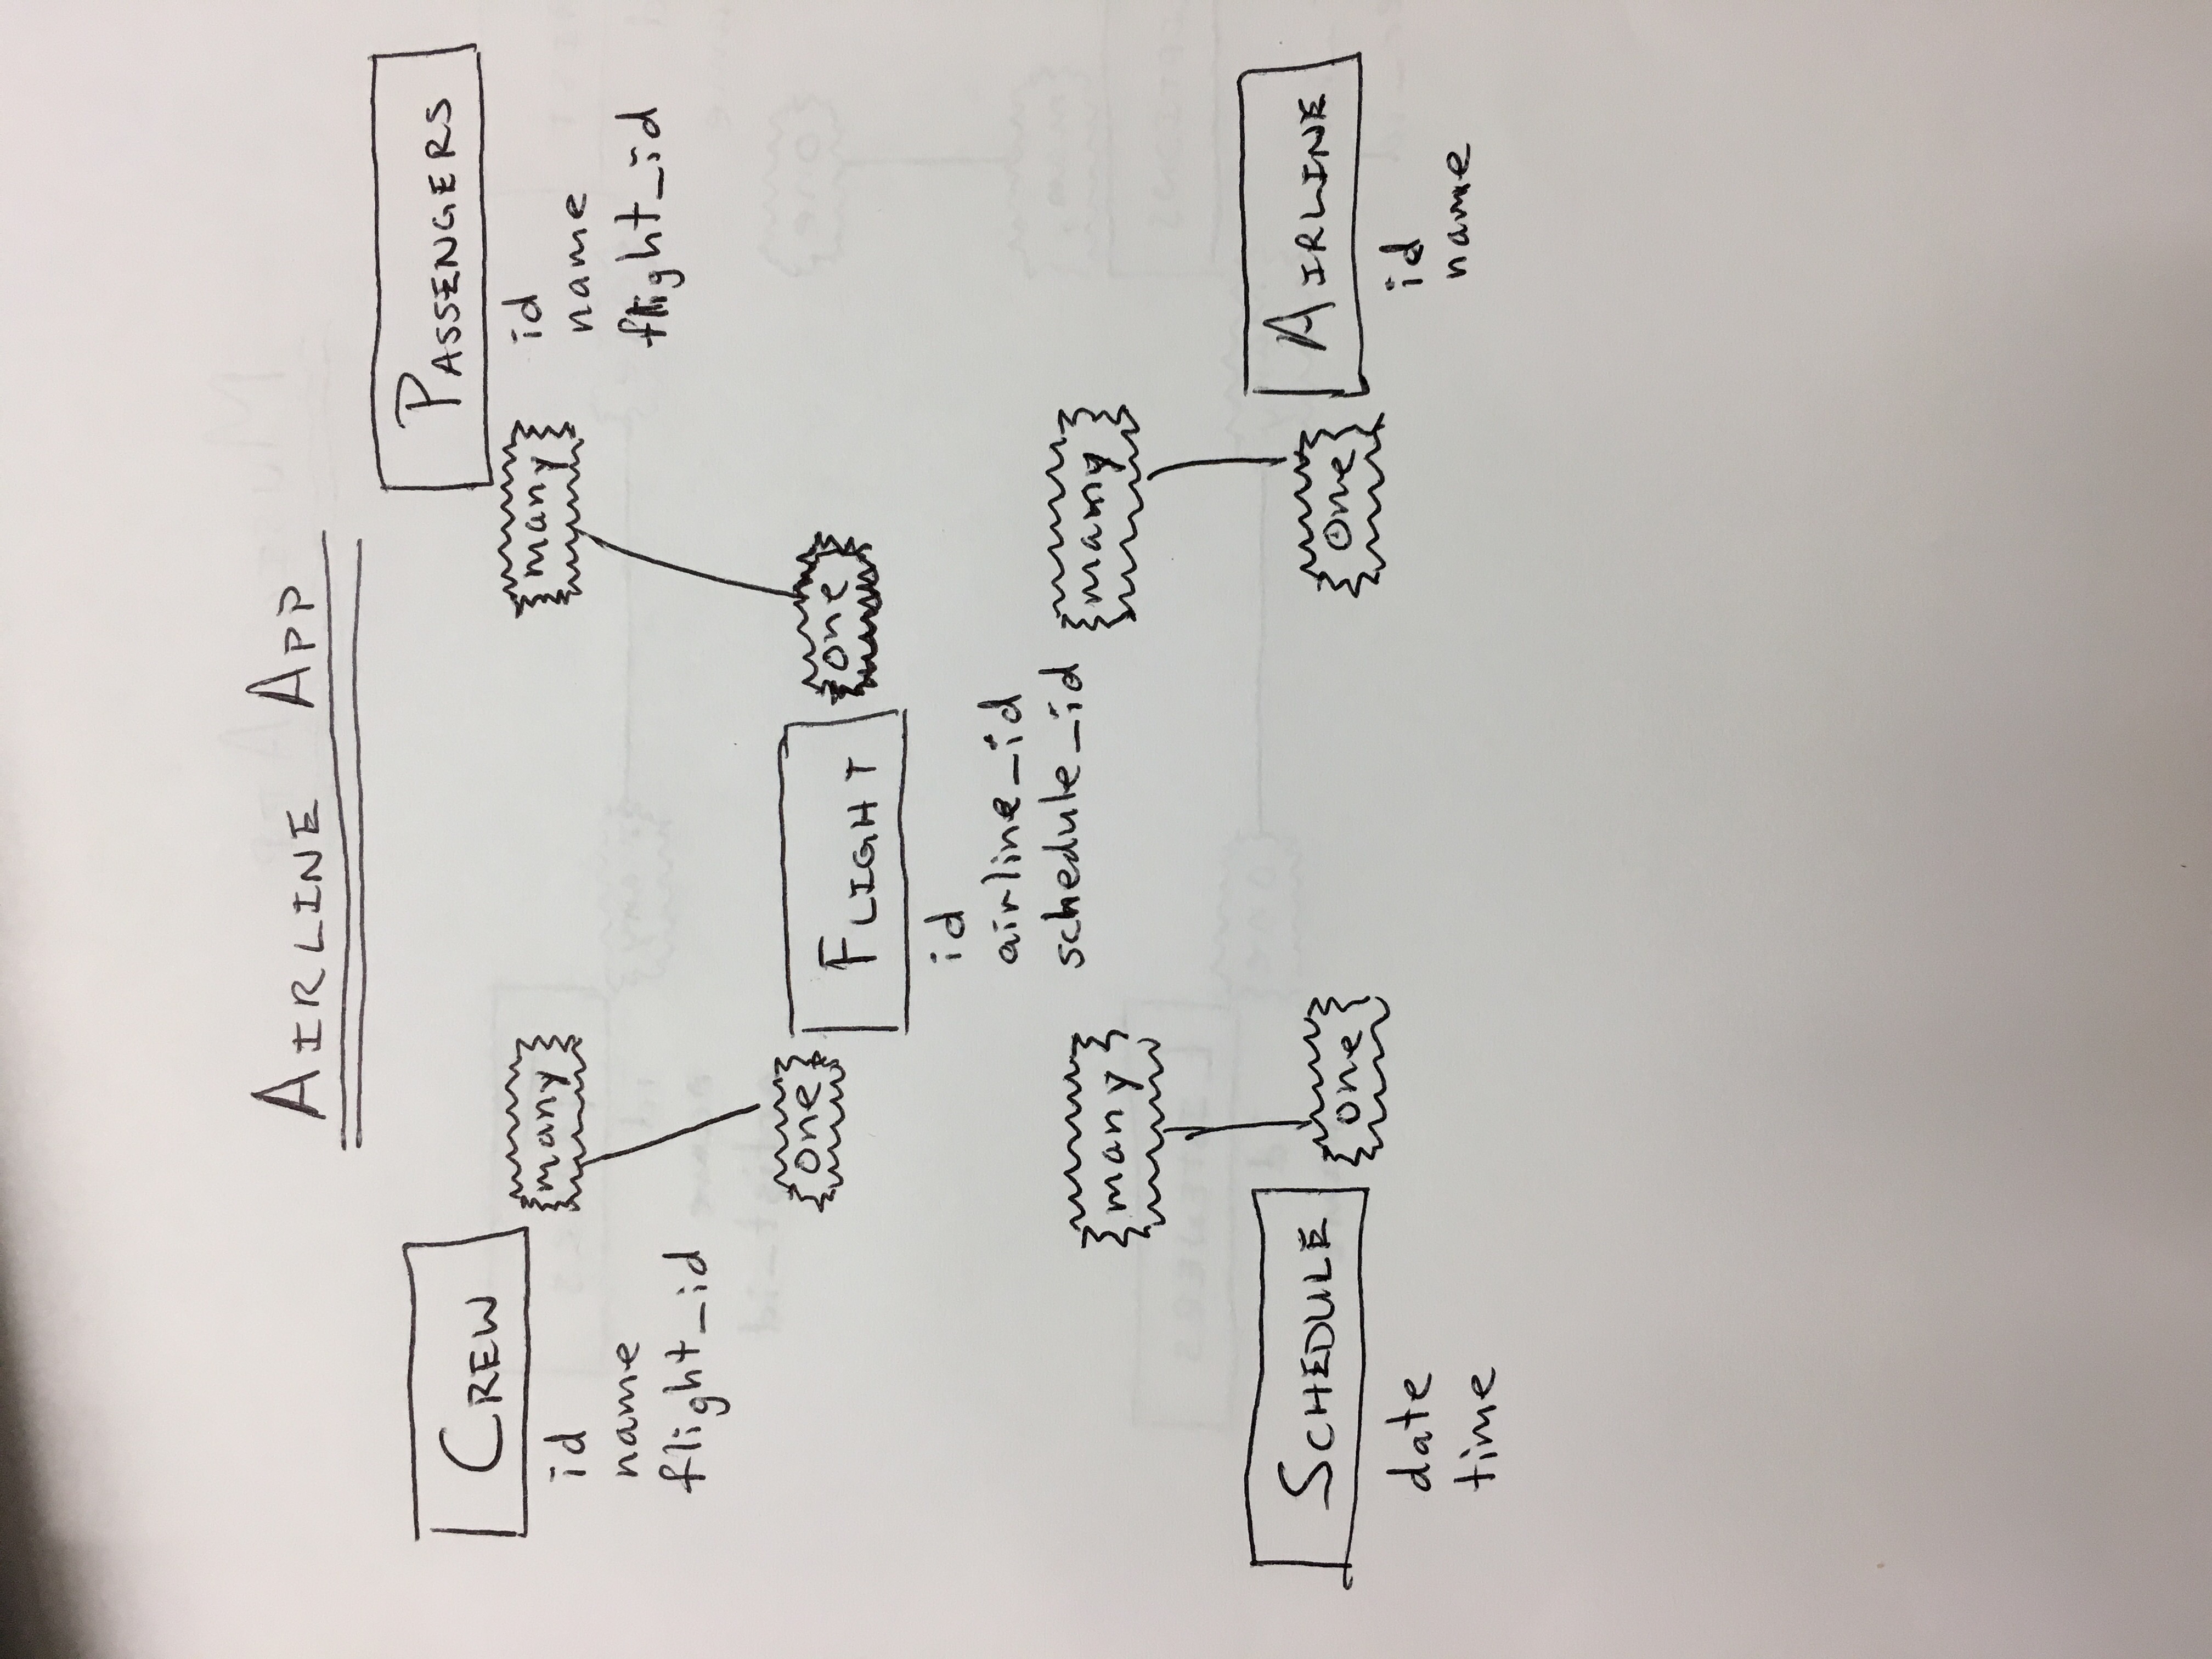 AIRLINE APP
CREW
id
name
flight_id
many
PASSENGERS
id
name
flight_id
many
one
FLIGHT
one
id
airline_id
schedule_id
many
many
SCHEDULE
one
date
time
one
AIRLINE
id
name